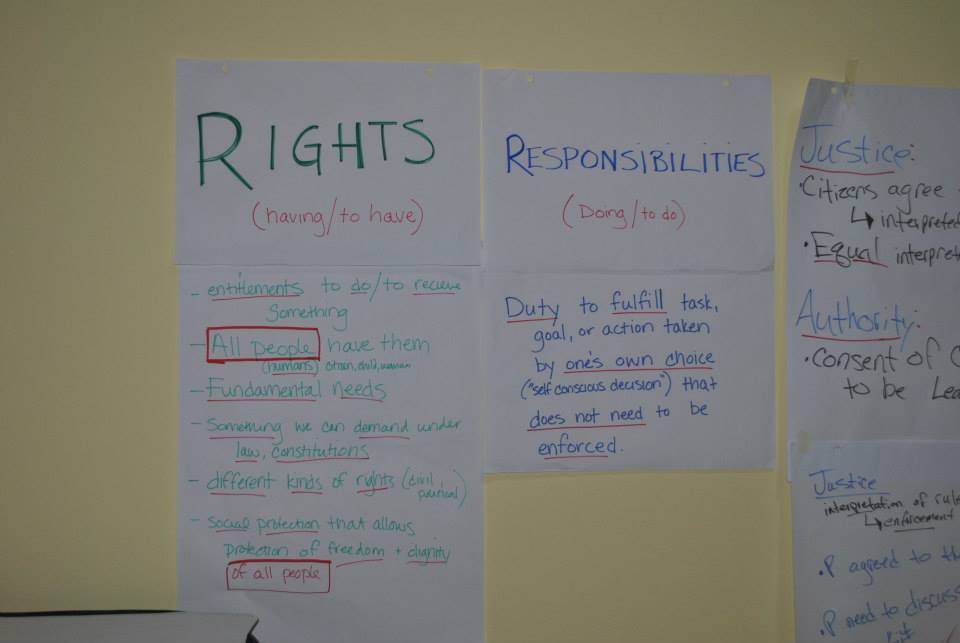 RIGHTS
(having/to have)
- entitlements to do/to recieve
something
- All people have them
(humans) child, woman
- Fundamental needs
- Something we can demand under
law, constitutions
- different kinds of rights (civil,
political)
- social protection that allows
protection of freedom + dignity
of all people
RESPONSIBILITIES
(Doing/to do)
Duty to fulfill task,
goal, or action taken
by one's own choice
("self conscious decision") that
does not need to be
enforced.
Justice:
• Citizens agree
↳ interpreted
• Equal interpret
Authority:
• consent of
to be Lea
Justice
interpretation of rul
↳ enforcement
• P agreed to th
• P need to discuss